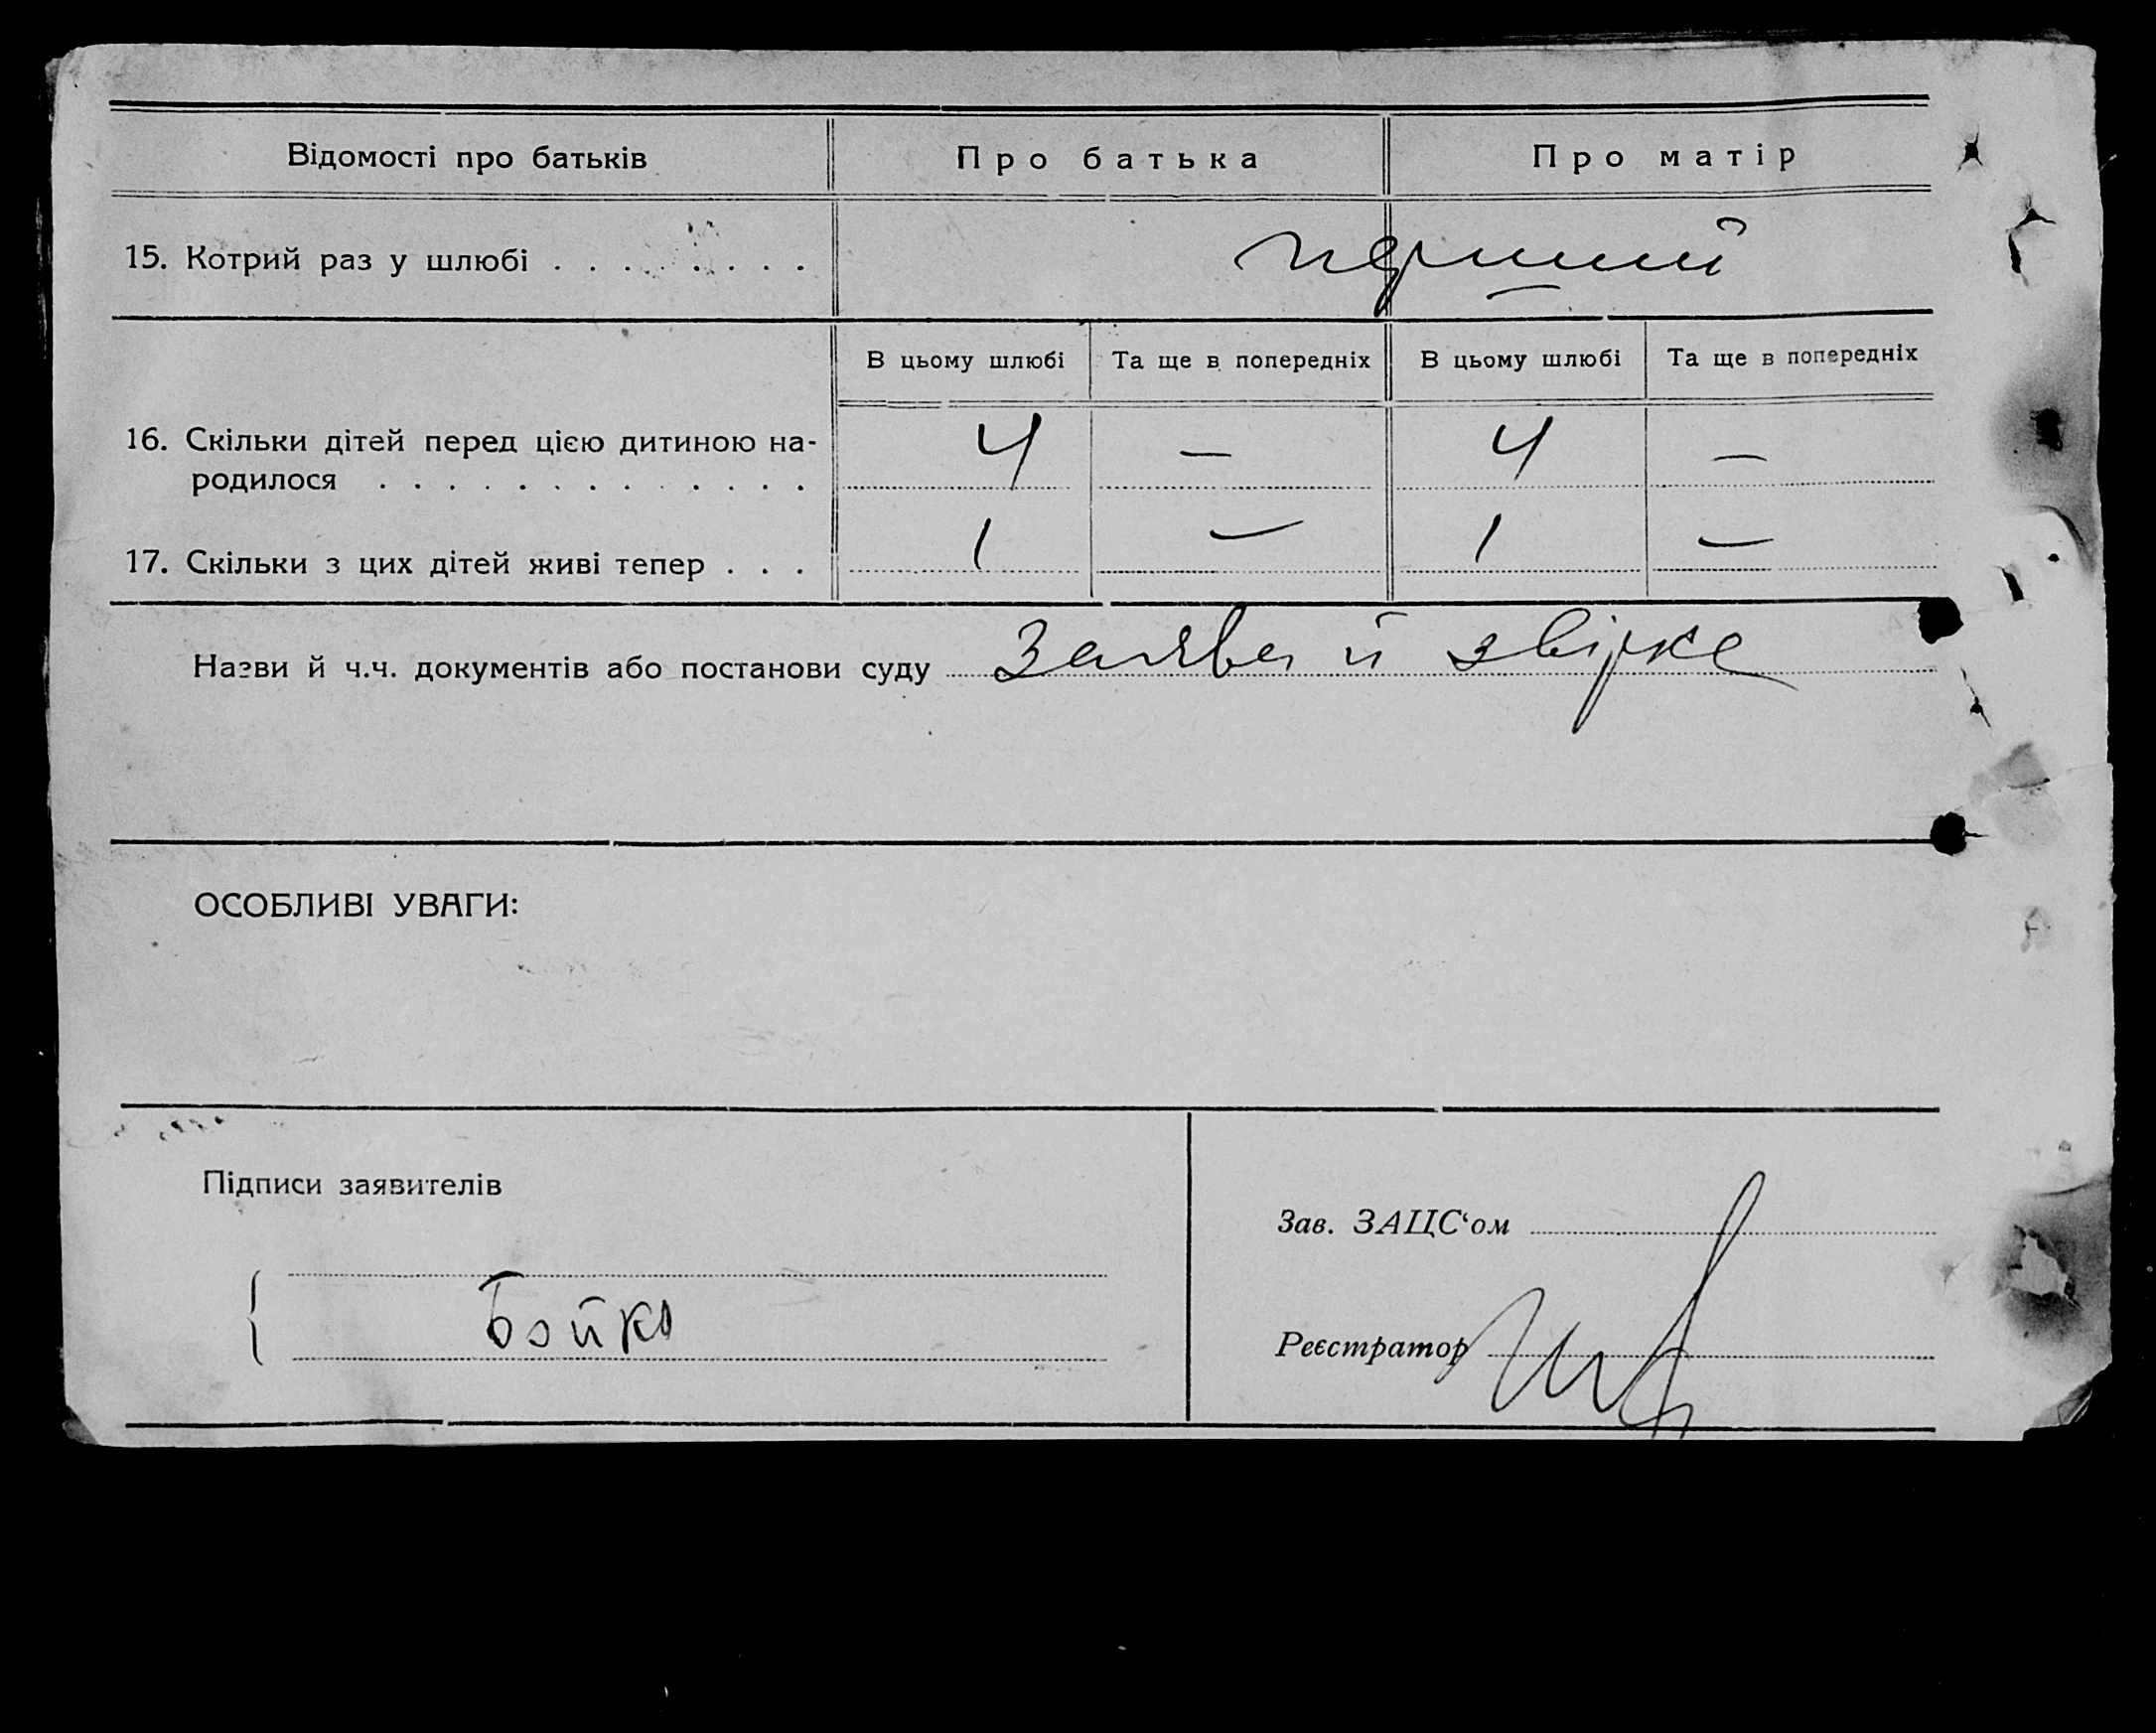 Відомості про батьків Про батька Про матір
15. Котрий раз у шлюбі . . . . . . . . перший
В цьому шлюбі Та ще в попередніх В цьому шлюбі Та ще в попередніх
16. Скільки дітей перед цією дитиною на-
родилося . . . . . . . . . . . . . 4 — 4 —
17. Скільки з цих дітей живі тепер . . . 1 — 1 —
Назви й ч.ч. документів або постанови суду Заява й звірка
ОСОБЛИВІ УВАГИ:
Підписи заявителів
Бойко
Зав. ЗАЦС‘ом
Реєстратор